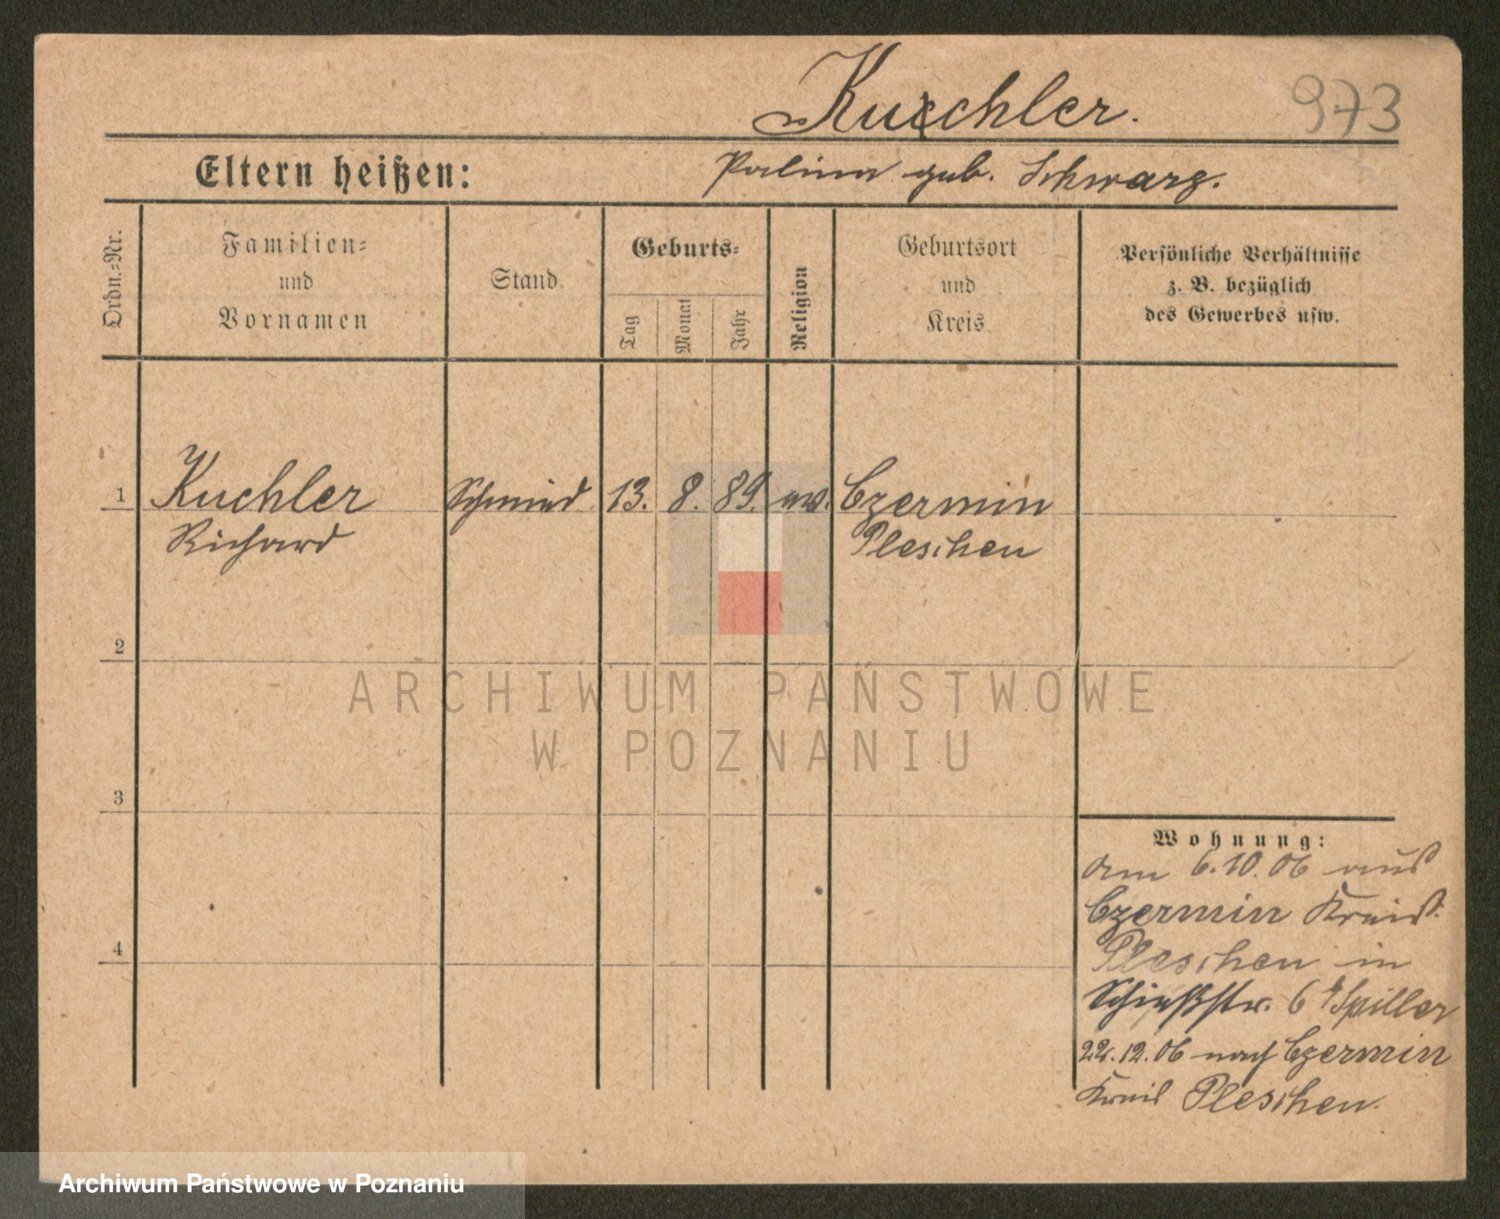 Kuechler. 973
Eltern heißen: Palina geb. Schwarz.
Ordn.=Nr.
Familien=
und
Vornamen
Stand
Geburts=
Tag
Monat
Jahr
Religion
Geburtsort
und
Kreis
Persönliche Verhältnisse
z. B. bezüglich
des Gewerbes usw.
1 Kuchler Schmied 13. 8. 89. ev. Czermin
Richard Pleschen
2
ARCHIWUM PAŃSTWOWE
W POZNANIU
3
Wohnung:
am 6.10.06 aus
Czermin Kreis
Pleschen in
4
Schießstr. 6 Spiller
22.12.06 nach Czermin
Kreis Pleschen.
Archiwum Państwowe w Poznaniu